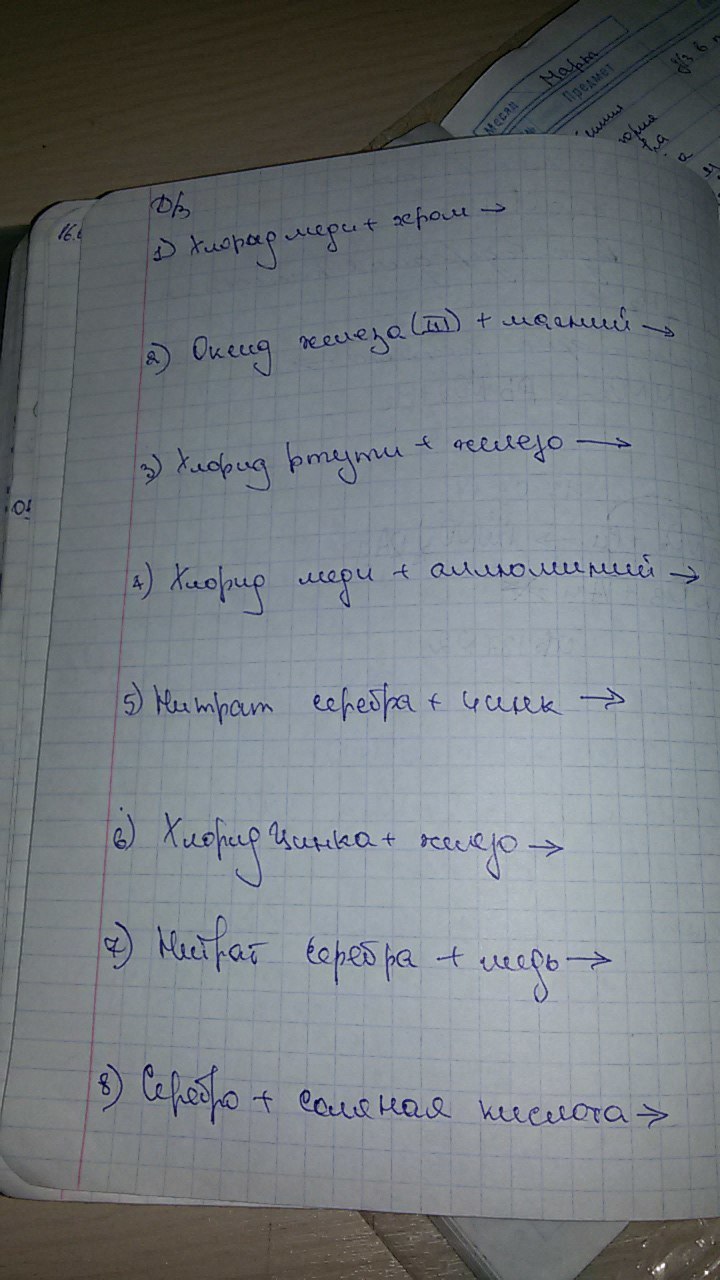 Марта
Месяц
Предмет
16.
Д/з
1) Хлорид меди + хром →
2) Оксид железа (III) + магний →
3) Хлорид ртути + железо →
4) Хлорид меди + аллюминий →
5) Нитрат серебра + цинк →
6) Хлорид цинка + железо →
7) Нитрат серебра + медь →
8) Серебро + соляная кислота →